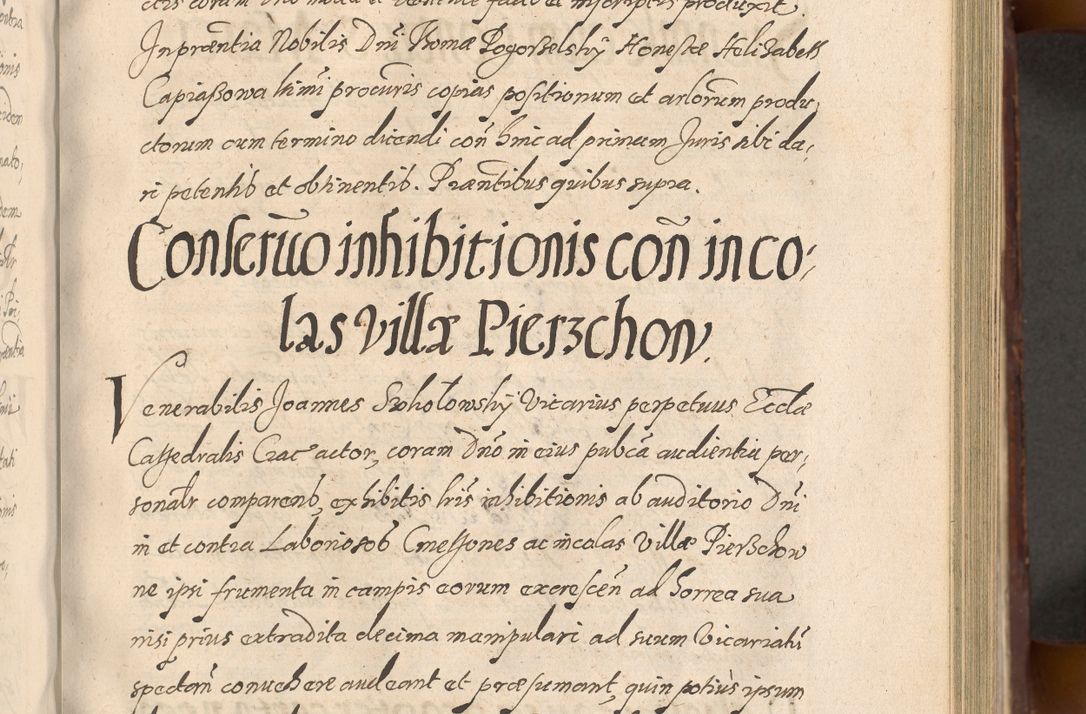 In præntia Nobilis Dni Thomæ Pogorselskÿ Honestæ Helisabeth
Capiaßowa hinc procuris copias positionum et arlorum produ,
ctorum cum termino dicendi coñ hinc ad primum Juris sibi da,
ri petentib et obtinentib. Præntibus quibus supra.
Conserũo inhibitionis coñ inco,
las villæ Pierzchow.
Venerabilis Joannes Sokołowskÿ Vicarius perpetuus Ecclæ
Cathedralis Crac actor, coram Dno in eius pubca audientia per,
sonalr comparens, exhibitis lris inhibitionis ab auditorio Dni
in et contra Laboriosos Cmethones ac incolas Villæ Pierzchow
ne ipsi frumenta in campis eorum excrescen ad horrea sua
nisi prius extradita decima manipulari ad suum Vicariatũ
spectañ convehere audeant et præsumant, quin potius ipsum